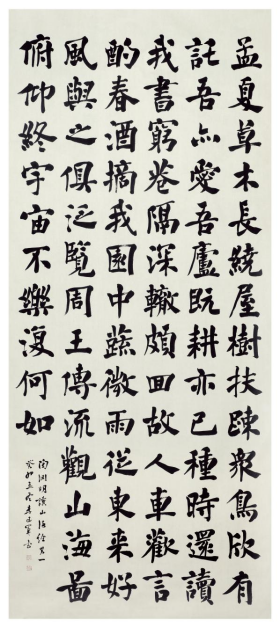 孟夏草木長繞屋樹扶疎衆鳥欣有
託吾亦愛吾廬既耕亦已種時還讀
我書窮巷隔深轍頗回故人車歡言
酌春酒摘我園中蔬微雨從東來好
風與之俱泛覽周王傳流觀山海圖
俯仰終宇宙不樂復何如
陶淵明讀山海經其一
癸卯